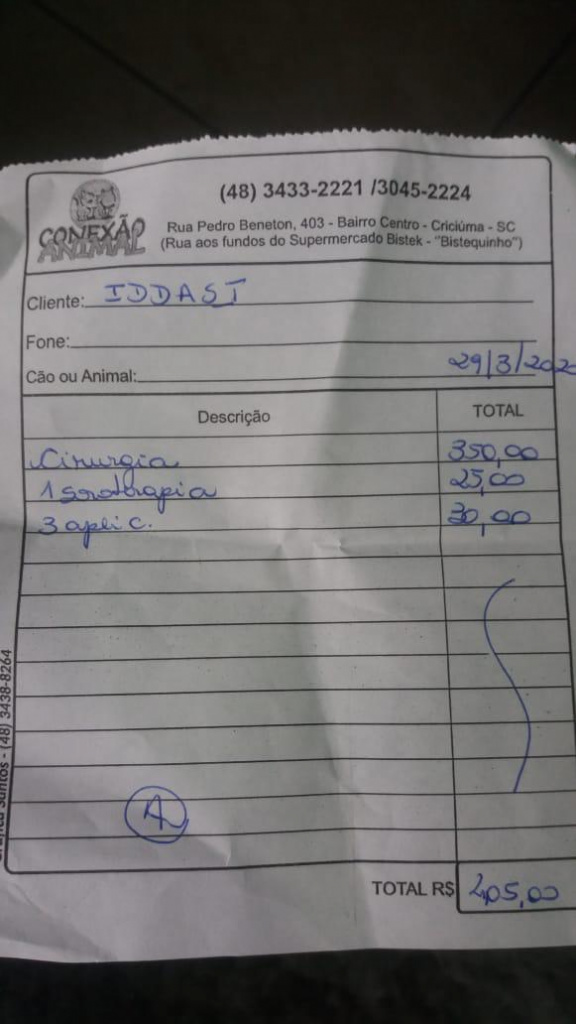 (48) 3433-2221 /3045-2224
CONEXÃO
ANIMAL
Rua Pedro Beneton, 403 - Bairro Centro - Criciúma - SC
(Rua aos fundos do Supermercado Bistek - "Bistequinho")
Cliente: IDDAST
Fone:
29/3/2020
Cão ou Animal:
Descrição TOTAL
Cirurgia 350,00
1 soroterapia 25,00
3 aplic. 30,00
A
TOTAL R$ 405,00
Santos - (48) 3438-8264